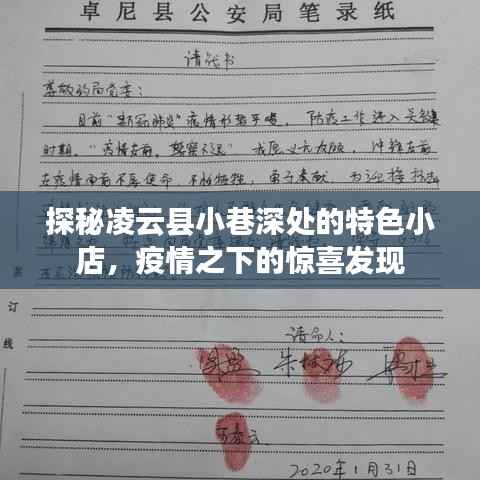 卓尼县公安局笔录纸
请战书
尊敬的局党委：
目前“新冠肺炎”疫情形势严峻，防疫工作进入关键
时期。“疫情在前，警察不退”我愿义无反顾，冲锋在前
在疫情面前不辱使命、不怕牺牲，勇于奉献，为迎接挑
探秘凌云县小巷深处的特色小
店，疫情之下的惊喜发现
订
线
请命人：
2020年1月31日